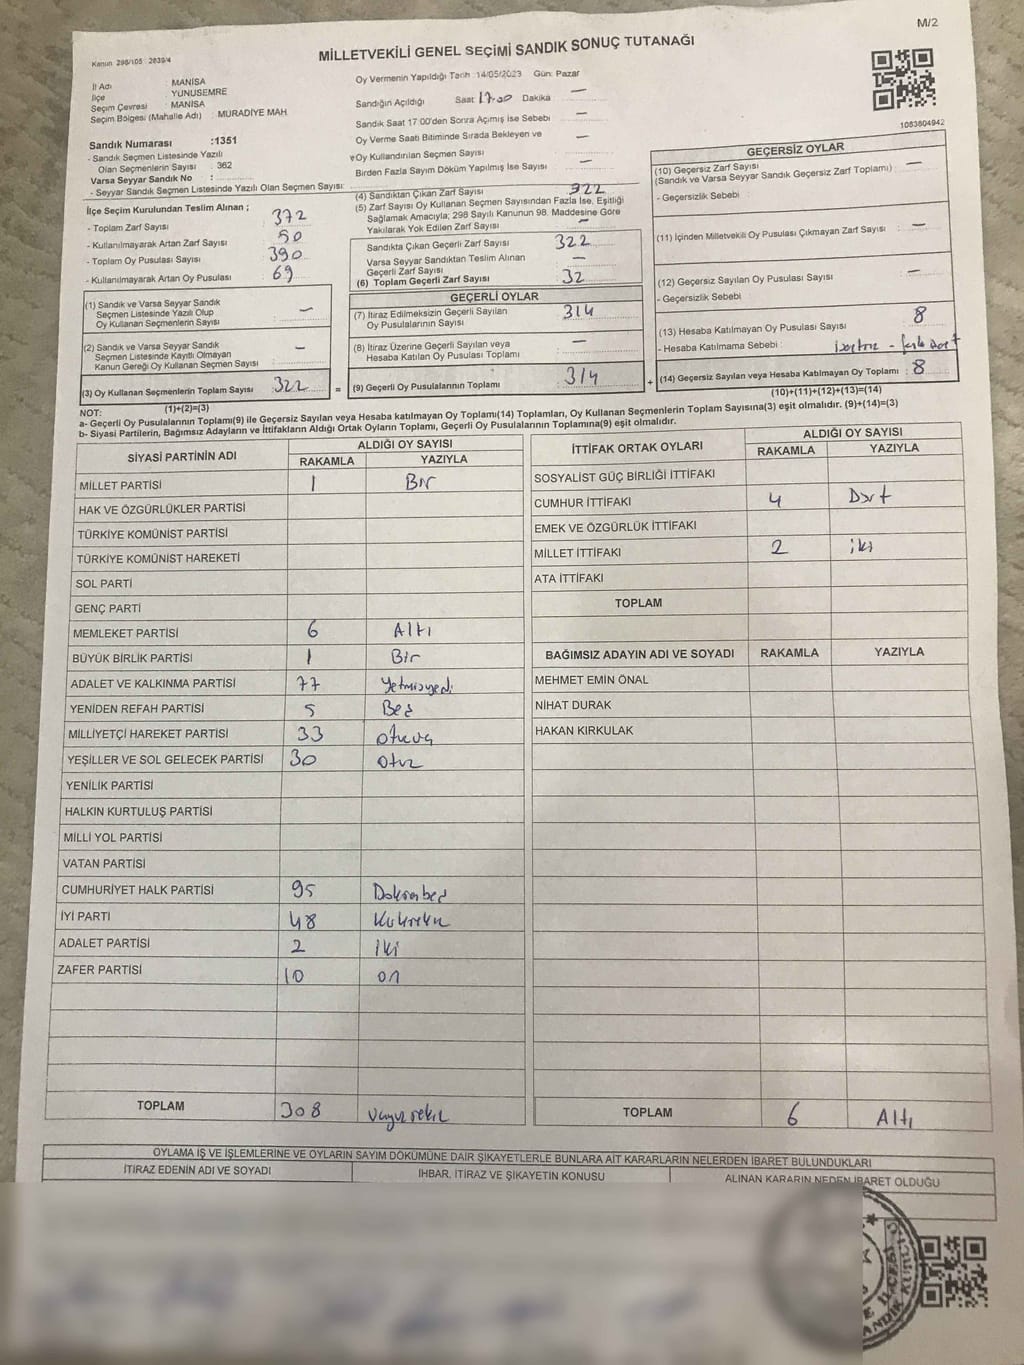 M/2
Kanun 298/105 2839/4
MİLLETVEKİLİ GENEL SEÇİMİ SANDIK SONUÇ TUTANAĞI
İl Adı MANİSA
İlçe YUNUSEMRE
Seçim Çevresi MANİSA
Seçim Bölgesi (Mahalle Adı) : MURADİYE MAH
Sandık Numarası :1351
- Sandık Seçmen Listesinde Yazılı
Olan Seçmenlerin Sayısı : 362
Varsa Seyyar Sandık No :
- Seyyar Sandık Seçmen Listesinde Yazılı Olan Seçmen Sayısı:
Oy Vermenin Yapıldığı Tarih :14/05/2023 Gün: Pazar
Sandığın Açıldığı Saat 17.00 Dakika —
Sandık Saat 17:00'den Sonra Açımış İse Sebebi —
Oy Verme Saati Bitiminde Sırada Bekleyen ve
Oy Kullandırılan Seçmen Sayısı —
Birden Fazla Sayım Döküm Yapılmış İse Sayısı —
1083804942
İlçe Seçim Kurulundan Teslim Alınan ;
- Toplam Zarf Sayısı 372
- Kullanılmayarak Artan Zarf Sayısı 50
- Toplam Oy Pusulası Sayısı 390
- Kullanılmayarak Artan Oy Pusulası 69
(1) Sandık ve Varsa Seyyar Sandık
Seçmen Listesinde Yazılı Olup
Oy Kullanan Seçmenlerin Sayısı —
(2) Sandık ve Varsa Seyyar Sandık
Seçmen Listesinde Kayıtlı Olmayan
Kanun Gereği Oy Kullanan Seçmen Sayısı —
(3) Oy Kullanan Seçmenlerin Toplam Sayısı 322
(1)+(2)=(3)
(4) Sandıktan Çıkan Zarf Sayısı 322
(5) Zarf Sayısı Oy Kullanan Seçmen Sayısından Fazla İse, Eşitliği
Sağlamak Amacıyla; 298 Sayılı Kanunun 98. Maddesine Göre
Yakılarak Yok Edilen Zarf Sayısı —
Sandıkta Çıkan Geçerli Zarf Sayısı 322
Varsa Seyyar Sandıktan Teslim Alınan
Geçerli Zarf Sayısı —
(6) Toplam Geçerli Zarf Sayısı 32
GEÇERLİ OYLAR
(7) İtiraz Edilmeksizin Geçerli Sayılan
Oy Pusulalarının Sayısı 314
(8) İtiraz Üzerine Geçerli Sayılan veya
Hesaba Katılan Oy Pusulası Toplamı —
= (9) Geçerli Oy Pusulalarının Toplamı 314
GEÇERSİZ OYLAR
(10) Geçersiz Zarf Sayısı
(Sandık ve Varsa Seyyar Sandık Geçersiz Zarf Toplamı) : —
- Geçersizlik Sebebi :
(11) İçinden Milletvekili Oy Pusulası Çıkmayan Zarf Sayısı : —
(12) Geçersiz Sayılan Oy Pusulası Sayısı —
- Geçersizlik Sebebi
(13) Hesaba Katılmayan Oy Pusulası Sayısı 8
- Hesaba Katılmama Sebebi :
+ (14) Geçersiz Sayılan veya Hesaba Katılmayan Oy Toplamı : 8
(10)+(11)+(12)+(13)=(14)
NOT:
a- Geçerli Oy Pusulalarının Toplamı(9) ile Geçersiz Sayılan veya Hesaba katılmayan Oy Toplamı(14) Toplamları, Oy Kullanan Seçmenlerin Toplam Sayısına(3) eşit olmalıdır. (9)+(14)=(3)
b- Siyasi Partilerin, Bağımsız Adayların ve İttifakların Aldığı Ortak Oyların Toplamı, Geçerli Oy Pusulalarının Toplamına(9) eşit olmalıdır.
SİYASİ PARTİNİN ADI ALDIĞI OY SAYISI
RAKAMLA YAZIYLA
MİLLET PARTİSİ 1 Bir
HAK VE ÖZGÜRLÜKLER PARTİSİ
TÜRKİYE KOMÜNİST PARTİSİ
TÜRKİYE KOMÜNİST HAREKETİ
SOL PARTİ
GENÇ PARTİ
MEMLEKET PARTİSİ 6 Altı
BÜYÜK BİRLİK PARTİSİ 1 Bir
ADALET VE KALKINMA PARTİSİ 77 Yetmişyedi
YENİDEN REFAH PARTİSİ 5 Beş
MİLLİYETÇİ HAREKET PARTİSİ 33 otuzüç
YEŞİLLER VE SOL GELECEK PARTİSİ 30 Otuz
YENİLİK PARTİSİ
HALKIN KURTULUŞ PARTİSİ
MİLLİ YOL PARTİSİ
VATAN PARTİSİ
CUMHURİYET HALK PARTİSİ 95 Doksanbeş
İYİ PARTİ 48 Kırksekiz
ADALET PARTİSİ 2 iki
ZAFER PARTİSİ 10 on
TOPLAM 308 üçyüzsekiz
İTTİFAK ORTAK OYLARI ALDIĞI OY SAYISI
RAKAMLA YAZIYLA
SOSYALİST GÜÇ BİRLİĞİ İTTİFAKI
CUMHUR İTTİFAKI 4 Dört
EMEK VE ÖZGÜRLÜK İTTİFAKI
MİLLET İTTİFAKI 2 iki
ATA İTTİFAKI
TOPLAM
BAĞIMSIZ ADAYIN ADI VE SOYADI RAKAMLA YAZIYLA
MEHMET EMİN ÖNAL
NİHAT DURAK
HAKAN KIRKULAK
TOPLAM 6 Altı
OYLAMA İŞ VE İŞLEMLERİNE VE OYLARIN SAYIM DÖKÜMÜNE DAİR ŞİKAYETLERLE BUNLARA AİT KARARLARIN NELERDEN İBARET BULUNDUKLARI
İTİRAZ EDENİN ADI VE SOYADI İHBAR, İTİRAZ VE ŞİKAYETİN KONUSU ALINAN KARARIN NEDEN İBARET OLDUĞU